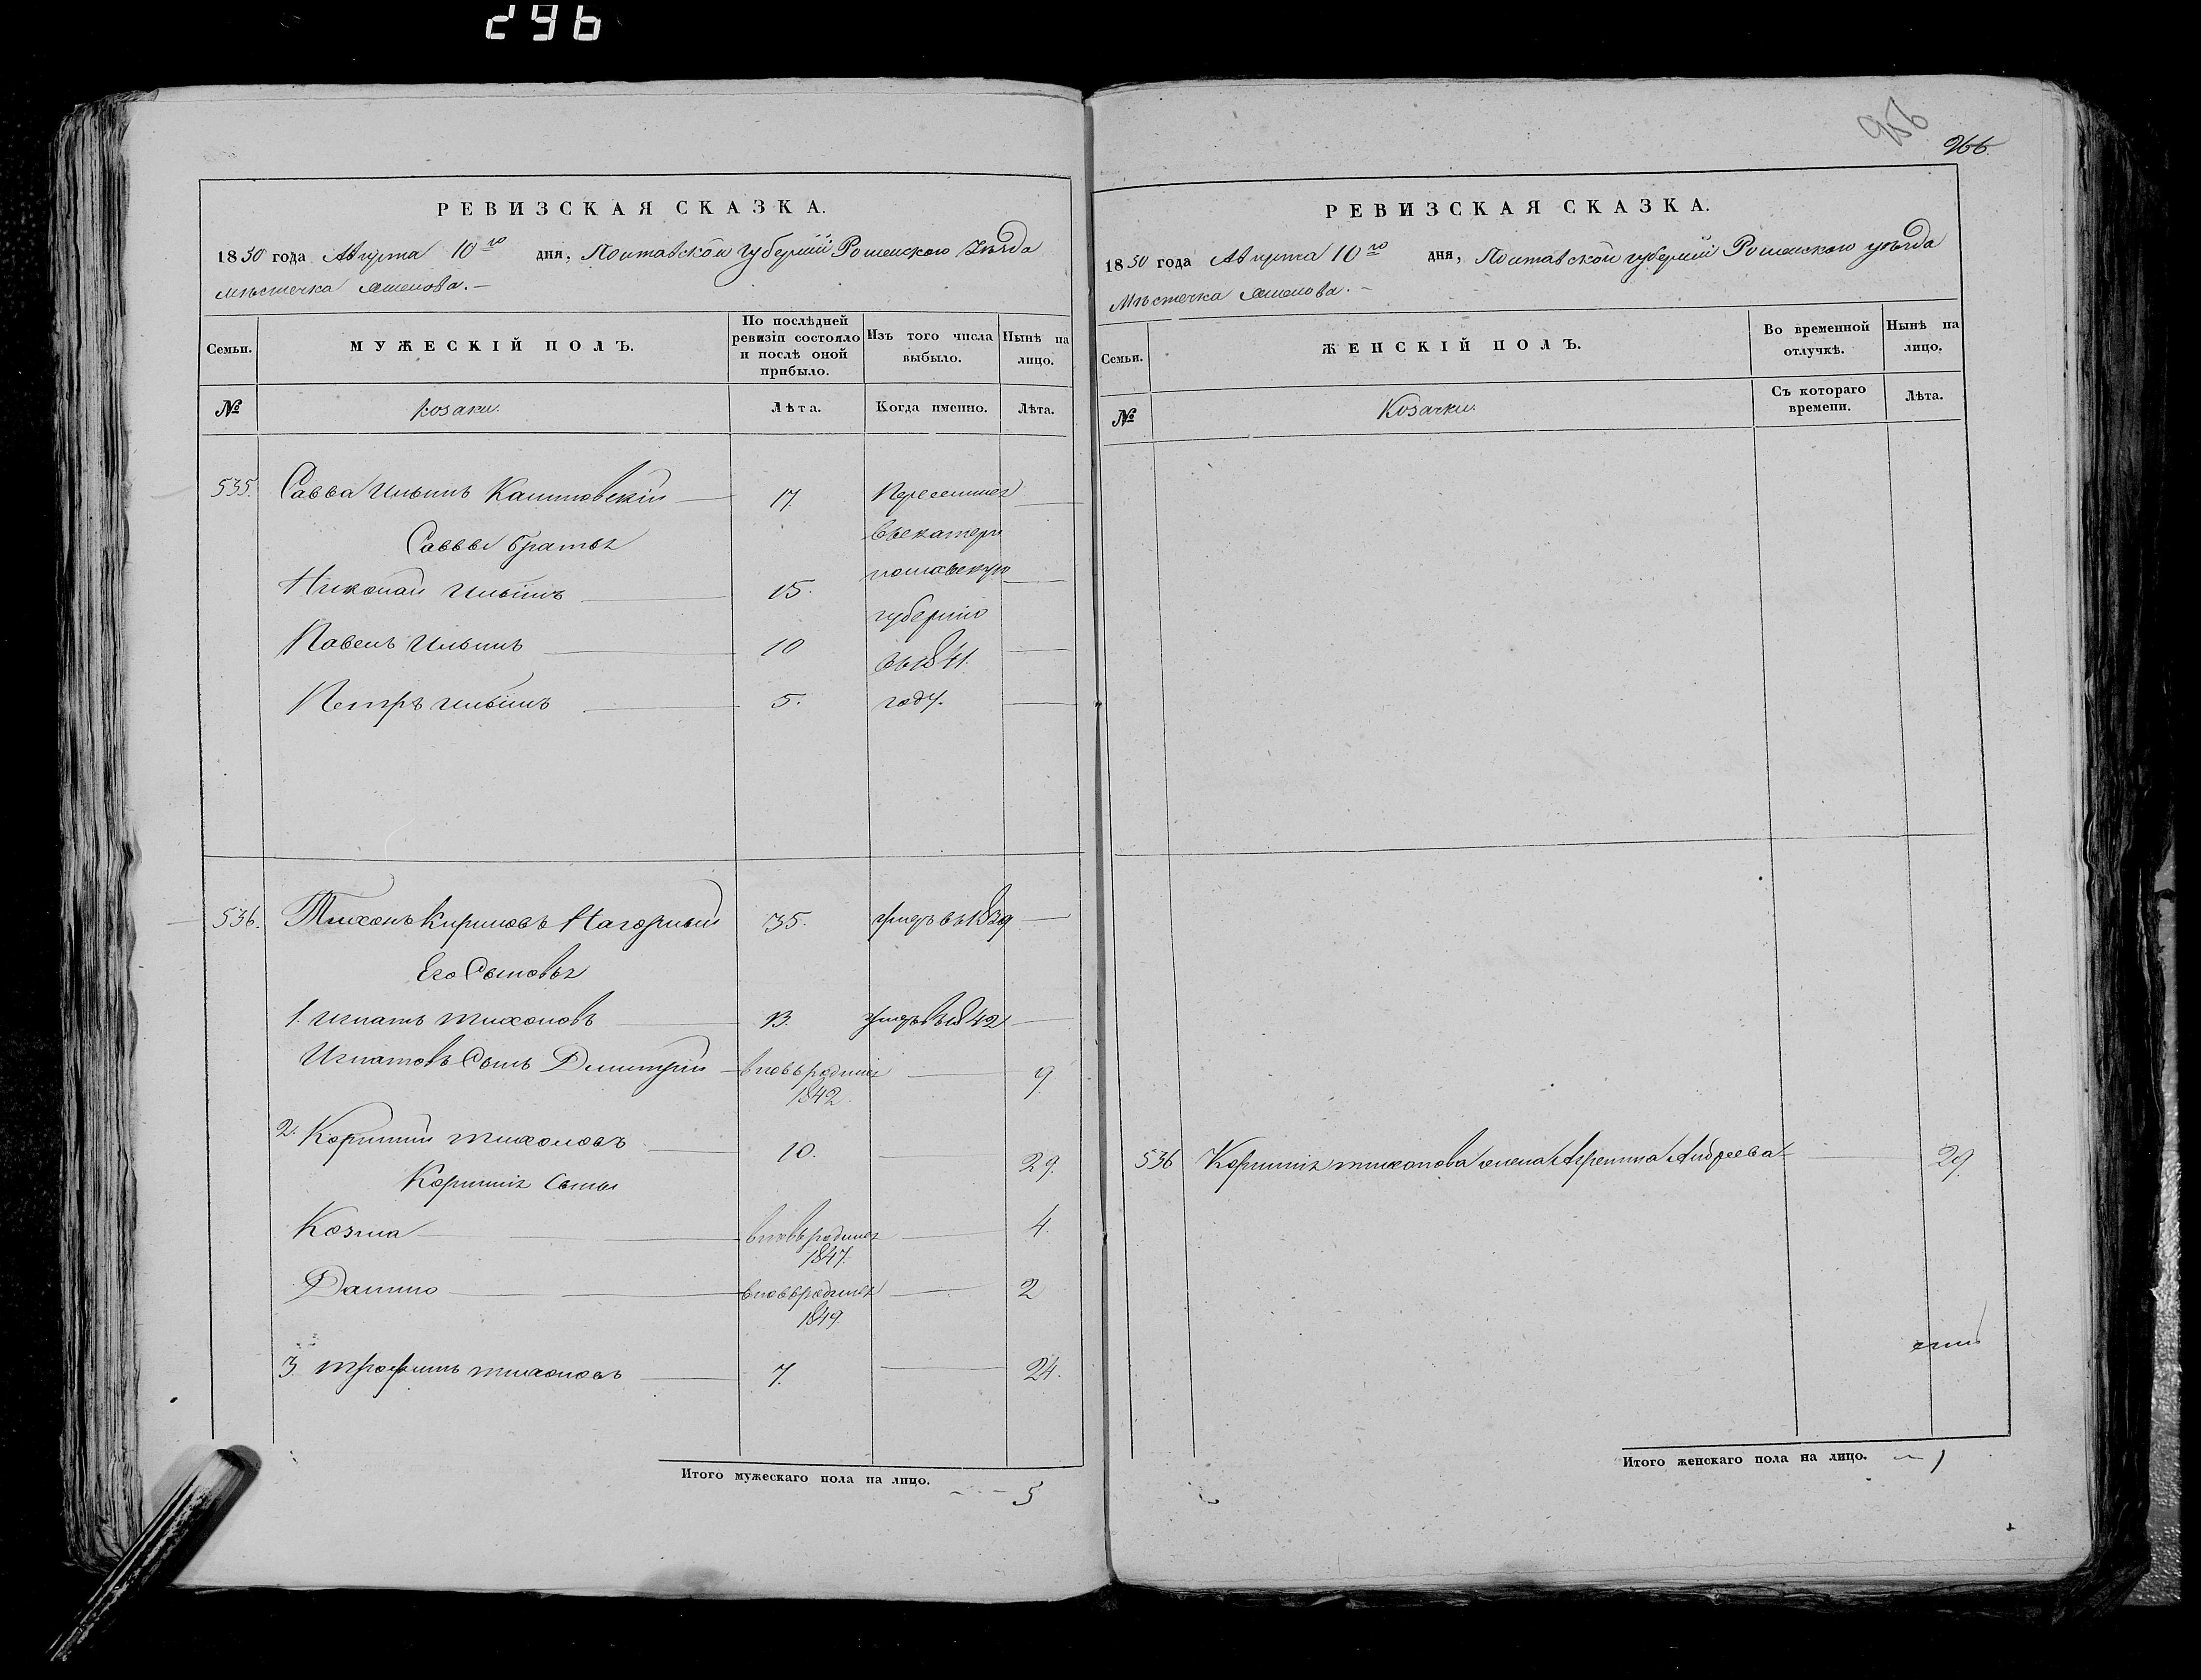 296
956
266.
РЕВИЗСКАЯ СКАЗКА.
1850 года Августа 10го дня, Полтавской губерніи Роменскаго Уѣзда
мѣстечка Смелова. —
Семьи.
МУЖЕСКІЙ ПОЛЪ.
По послѣдней ревизіи состояло и послѣ оной прибыло.
Изъ того числа выбыло.
Нынѣ на лицо.
№
козаки.
Лѣта.
Когда именно.
Лѣта.
535. Савва Ильинъ 17. Переселился
Саввы братья въ екатери
Николай Ильинъ 15. нославскую
губернію
Павелъ Ильинъ 10 въ 1841.
Петръ Ильинъ 5. году.
536. Тихонъ Кириловъ Нагорный 35. умеръ въ 1839
Его Сыновья
1. Игнатъ Тихоновъ 13. умеръ въ 1842
Игнатовъ Сынъ Димитрій вновьродился 9
1842.
2. Корнилій Тихоновъ 10. 29.
Корнилія Сыны
Козма вновьродился 4.
1847.
Данило вновьродился 2
1849.
3. Трофимъ Тихоновъ 7. 24.
Итого мужескаго пола на лицо. 5
РЕВИЗСКАЯ СКАЗКА.
1850 года Августа 10го дня, Полтавской губерніи Роменскаго уѣзда
Мѣстечка Смелова. —
Семьи.
ЖЕНСКІЙ ПОЛЪ.
Во временной отлучкѣ.
Нынѣ на лицо.
№
Козачки.
Съ котораго времени.
Лѣта.
536 Корнилія Тихонова жена Агрепина Андреева 29.
Итого женскаго пола на лицо. 1